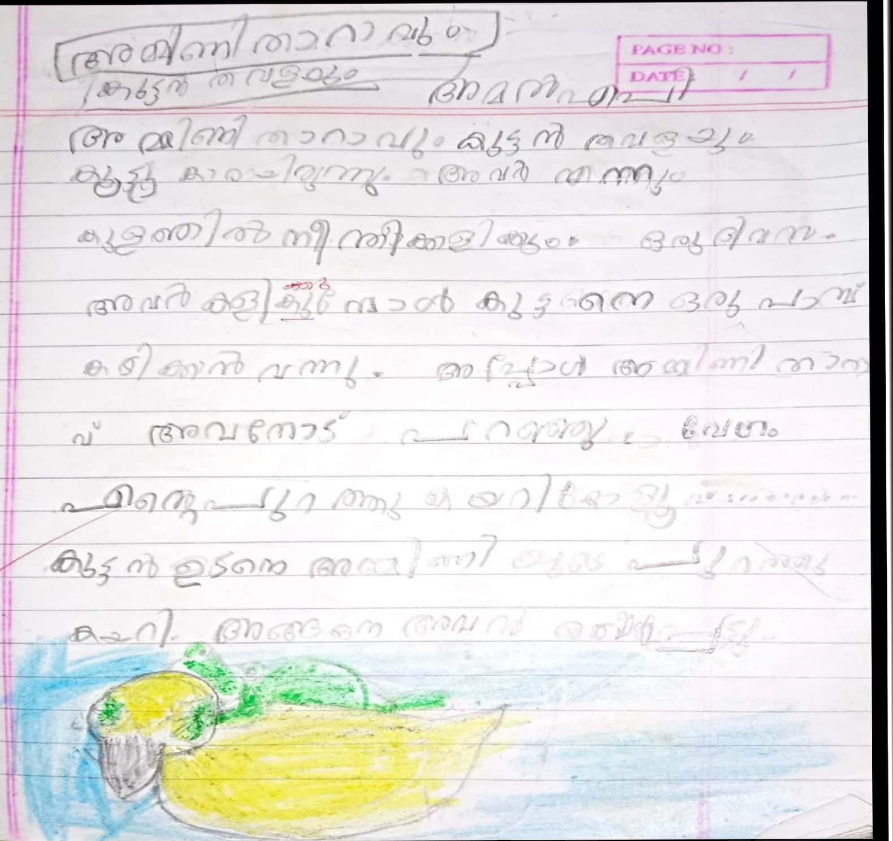 അമ്മിണി താറാവും
കുട്ടൻ തവളയും
PAGE NO :
DATE / /
അമൽ പി
അമ്മിണി താറാവും കുട്ടൻ തവളയും
കൂട്ടുകാരായിരുന്നു. അവർ എന്നും
കുളത്തിൽ നീന്തിക്കളിക്കും. ഒരു ദിവസം
അവർ കളിക്കുമ്പോൾ കുട്ടനെ ഒരു പാമ്പ്
കടിക്കാൻ വന്നു. അപ്പോൾ അമ്മിണി താറാ
വ് അവനോട് പറഞ്ഞു. വേഗം
എന്റെ പുറത്തു കയറിക്കോളൂ
കുട്ടൻ ഉടനെ അമ്മിണിയുടെ പുറത്തു
കയറി. അങ്ങനെ അവൻ രക്ഷപ്പെട്ടു.